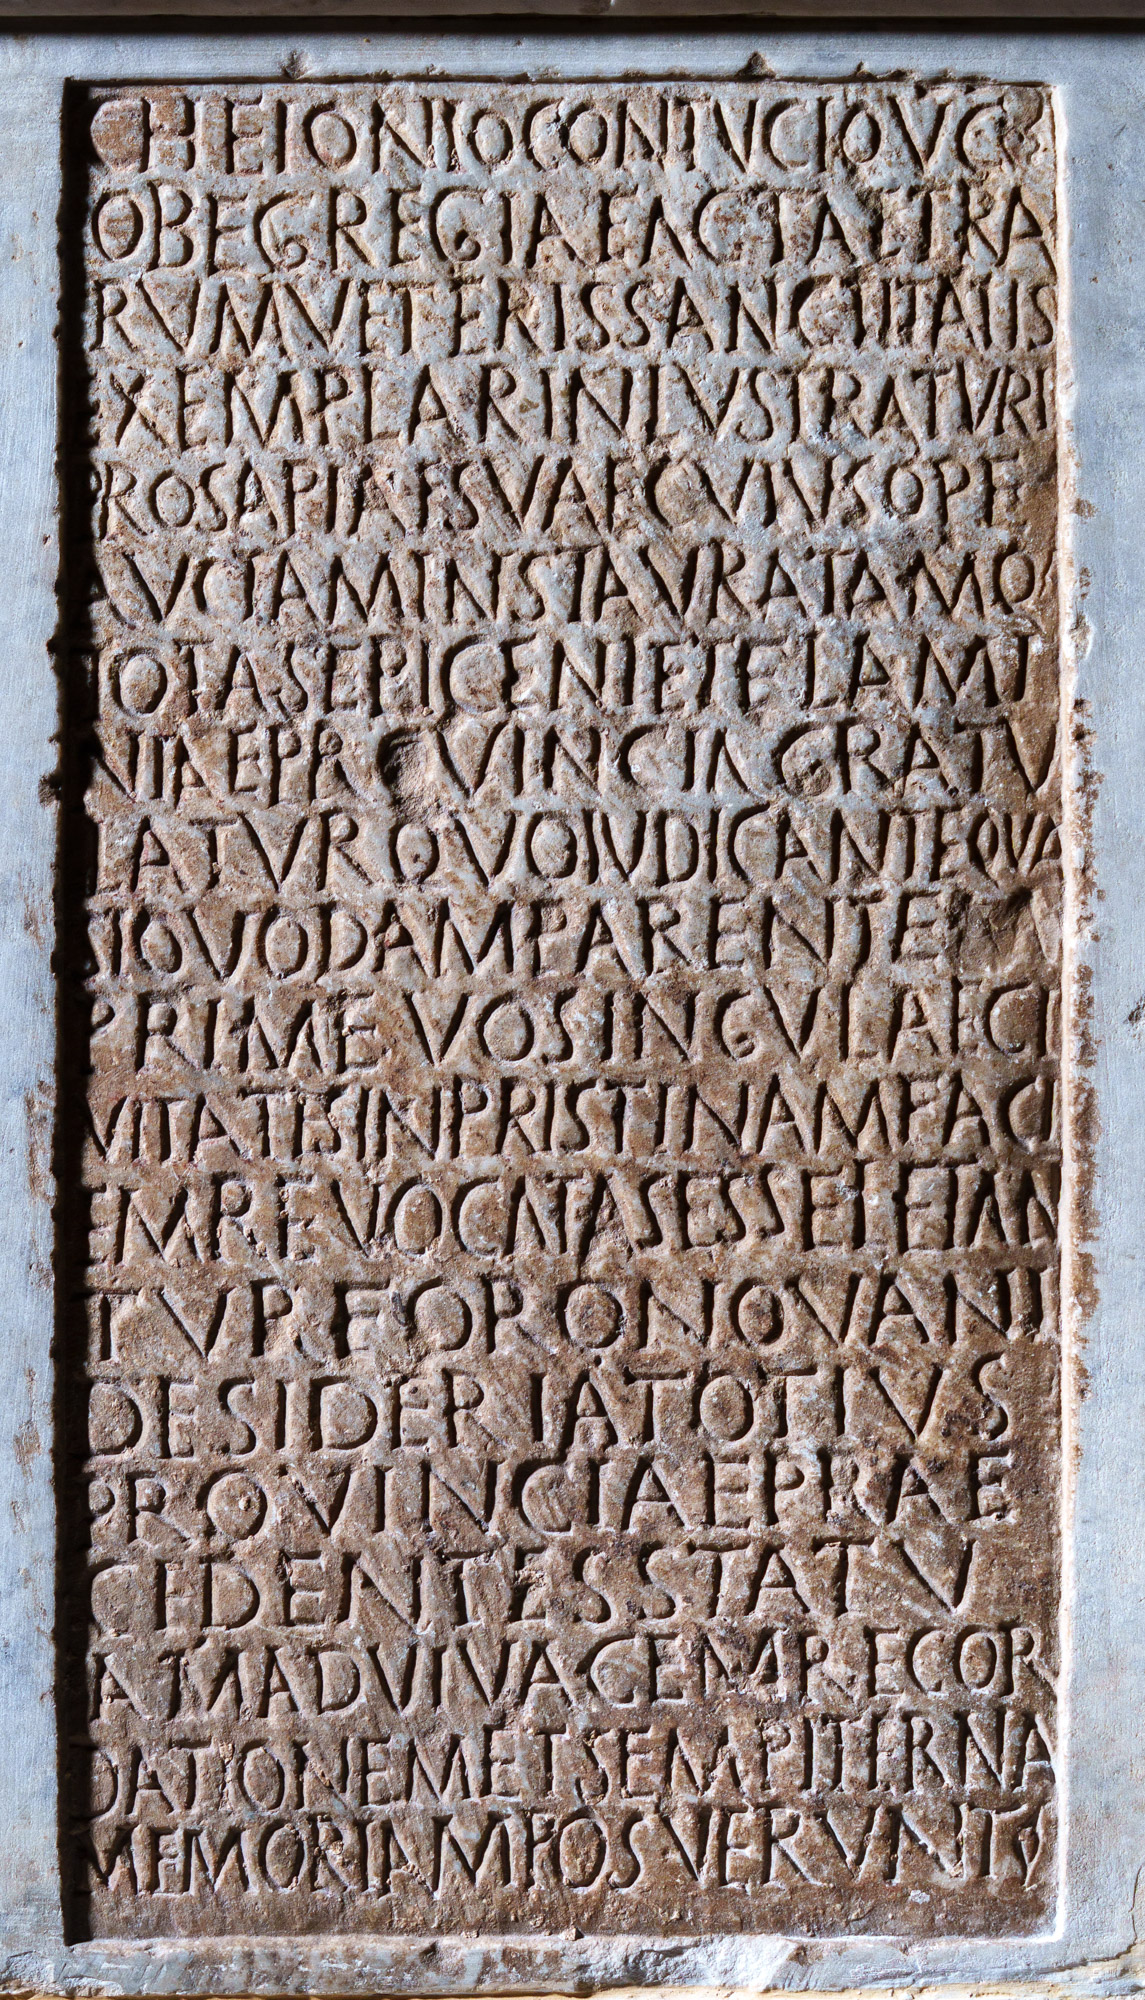 CHEIONIOCONTVCIOVC
OBEGREGIAFACTAETRA
RVMVETERISSANCTITATIS
EXEMPLARINLVSTRATVRI
PROSAPIAESVAECVIVSOPE
AVCTAMINSTAVRATAMQ
TOTASEPICENIETFLAMI
NIAEPROVINCIAGRATV
LATVRQVOIVDICANTEQVA
SIQVODAMPARENTE
PRIMEVOSINGVLAECI
VITATESINPRISTINAMFACI
EMREVOCATASESSELETAN
TVREOPRONOVANT
DESIDERIATOTIVS
PROVINCIAEPRAE
CIDENTESSTATV
AMADVIVACEMRECOR
DATIONEMETSEMPITERNA
MEMORIAMPOSVERVNT